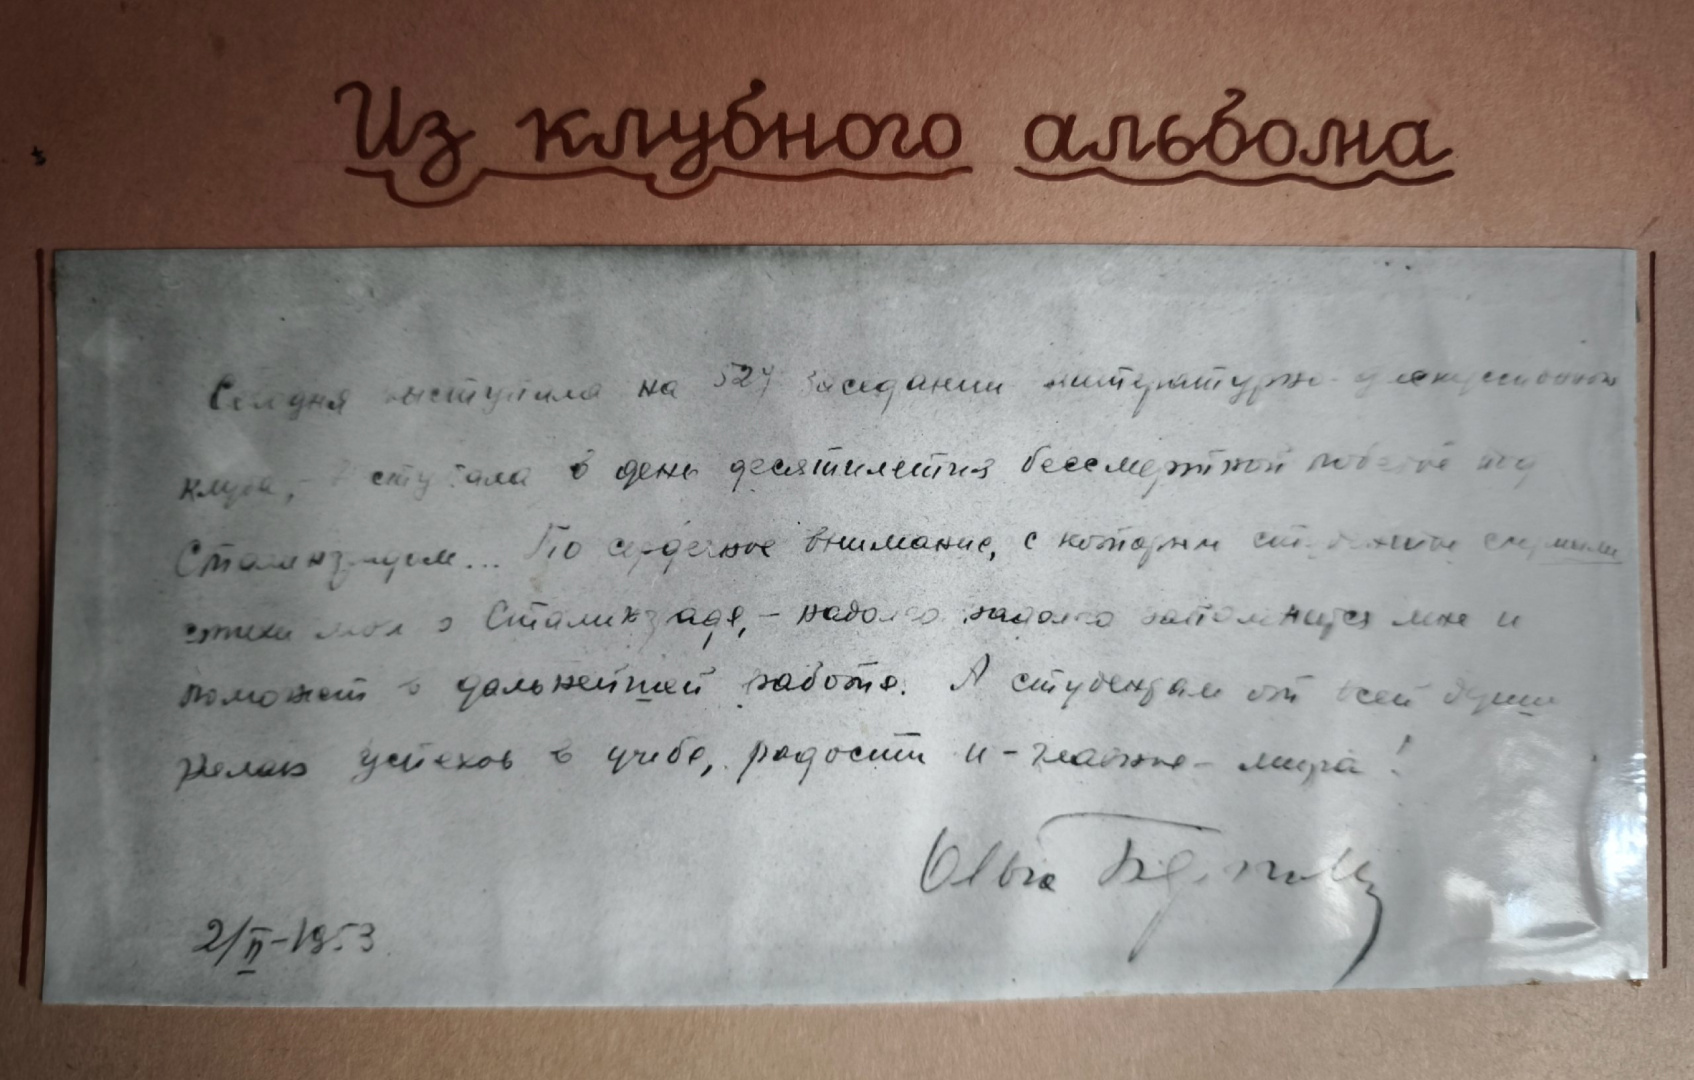 Из клубного альбома
Сегодня выступила на 527 заседании литературно-дискуссионного
клуба, – выступала в день десятилетия бессмертной победы под
Сталинградом... То сердечное внимание, с которым студенты слушали
стихи мои о Сталинграде, – надолго надолго запомнится мне и
поможет в дальнейшей работе. А студентам от всей души
желаю успехов в учебе, радости и – главное – мира!
Ольга Берггольц
2/II–1953